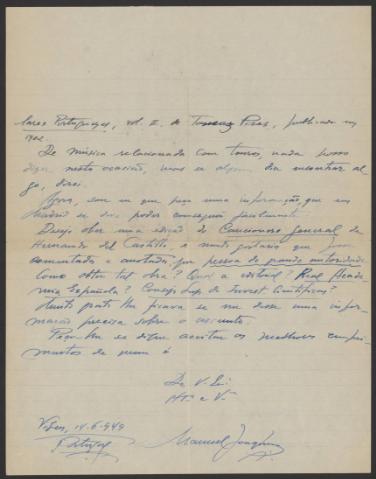 Portuguezes, vol. II, de Thomaz Pires, publicado em
1902
De música relacionada com touros, nada posso
dizer nesta ocasião, mas se algum dia encontrar al-
go, direi.
Agora, sou eu que peço uma informação, que em
Madrid se deve poder conseguir facilmente.
Desejo obter uma edição do Cancionero General de
Hernando del Castillo, e muito gostaria que fosse
comentada e anotada por pessoa de grande autoridade.
Como obter tal obra? Qual a editorial? Real Acade-
mia Española? Consejo Sup. de Invest. Científicas?
Muito grato lhe ficava se me desse uma infor-
mação precisa sobre o assunto.
Peço-lhe se digne aceitar os melhores cumpri-
mentos de quem é
De V. 
Viseu, 14-6-949
Portugal
Manuel Joaquim